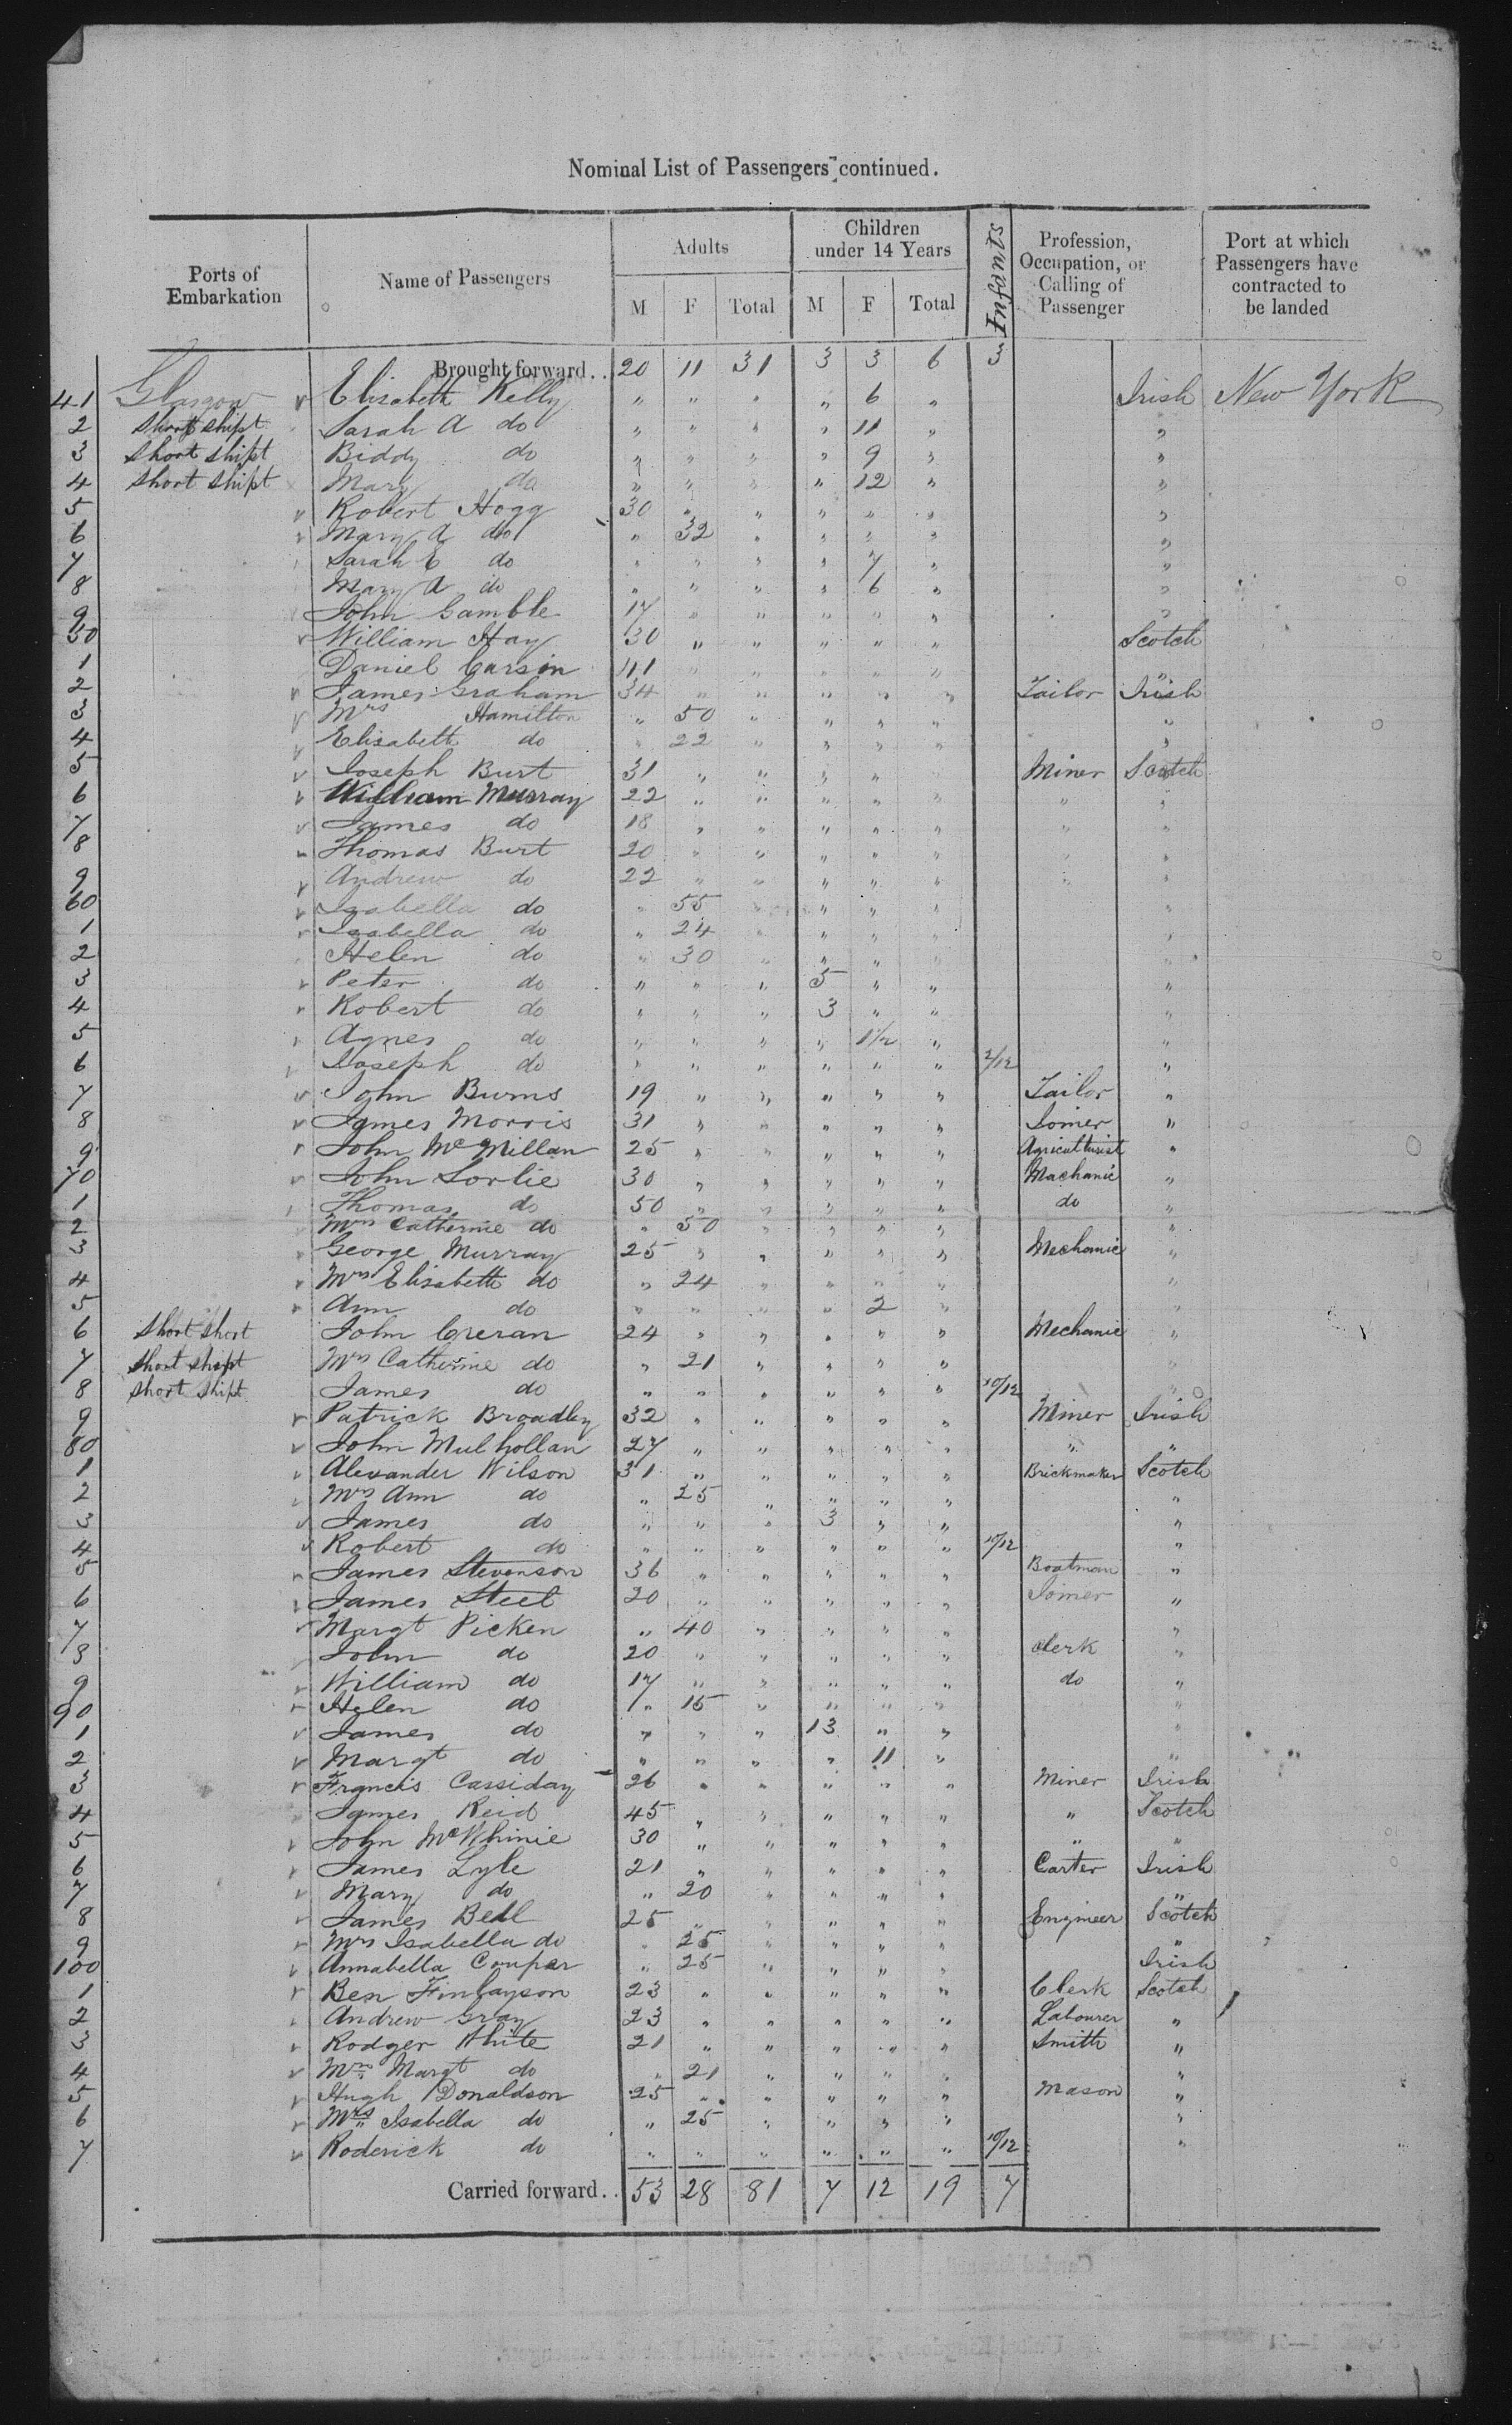 Nominal List of Passengers continued.
Ports of Embarkation Name of Passengers Adults M F Total Children under 14 Years M F Total Infants Profession, Occupation, or Calling of Passenger Port at which Passengers have contracted to be landed
Brought forward.. 20 11 31 3 3 6 3
41 Glasgow Elisabeth Kelly " " " " 6 " Irish New York
2 Short shipt Sarah A do " " " " 11 " "
3 Short shipt Biddy do " " " " 9 " "
4 Short shipt Mary do " " " " 12 " "
5 Robert Hogg 30 " " " " " "
6 Mary A do " 32 " " " " "
7 Sarah E do " " " " 7 " "
8 Mary A do " " " " 6 " "
9 John Gamble 17 " " " " " "
50 William Hay 30 " " " " " Scotch
1 Daniel Carsin 41 " " " " " "
2 James Graham 34 " " " " " Tailor Irish
3 Mrs Hamilton " 50 " " " " "
4 Elisabeth do " 22 " " " " "
5 Joseph Burt 31 " " " " " Miner Scotch
6 William Murray 22 " " " " " " "
7 James do 18 " " " " " " "
8 Thomas Burt 20 " " " " " " "
9 Andrew do 22 " " " " " " "
60 Isabella do " 55 " " " " "
1 Isabella do " 24 " " " " "
2 Helen do " 30 " " " " "
3 Peter do " " " 5 " " "
4 Robert do " " " 3 " " "
5 Agnes do " " " " 1½ " "
6 Joseph do " " " " " " 2/12 "
7 John Burns 19 " " " " " Tailor "
8 James Morris 31 " " " " " Joiner "
9 John McMillan 25 " " " " " Agriculturist "
70 John Sorlie 30 " " " " " Machanic "
1 Thomas do 50 " " " " " do "
2 Mrs Catherine do " 50 " " " " "
3 George Murray 25 " " " " " Mechanic "
4 Mrs Elisabeth do " 24 " " " " "
5 Ann do " " " " 2 " "
6 Short Short John Creran 24 " " " " " Mechanic "
7 Short Shipt Mrs Catherine do " 21 " " " " "
8 Short Shipt James do " " " " " " 10/12 "
9 Patrick Broadley 32 " " " " " Miner Irish
80 John Mulhollan 27 " " " " " " "
1 Alexander Wilson 31 " " " " " Brickmaker Scotch
2 Mrs Ann do " 25 " " " " "
3 James do " " " 3 " " "
4 Robert do " " " " " " 10/12 "
5 James Stevenson 36 " " " " " Boatman "
6 James Steel 20 " " " " " Joiner "
7 Margt Picken " 40 " " " " "
8 John do 20 " " " " " clerk "
9 William do 17 " " " " " do "
90 Helen do " 15 " " " " "
1 James do " " " 13 " " "
2 Margt do " " " " 11 " "
3 Francis Cassiday 26 " " " " " Miner Irish
4 James Reid 45 " " " " " " Scotch
5 John McWhinie 30 " " " " " " "
6 James Lyle 21 " " " " " Carter Irish
7 Mary do " 20 " " " " "
8 James Bell 25 " " " " " Engineer Scotch
9 Mrs Isabella do " 25 " " " " "
100 Annabella Couper " 25 " " " " Irish
1 Ben Finlayson 23 " " " " " Clerk Scotch
2 Andrew Gray 23 " " " " " Labourer "
3 Rodger White 21 " " " " " Smith "
4 Mrs Margt do " 21 " " " " "
5 Hugh Donaldson 25 " " " " " Mason "
6 Mrs Isabella do " 25 " " " " "
7 Roderick do " " " " " " 10/12 "
Carried forward.. 53 28 81 7 12 19 7